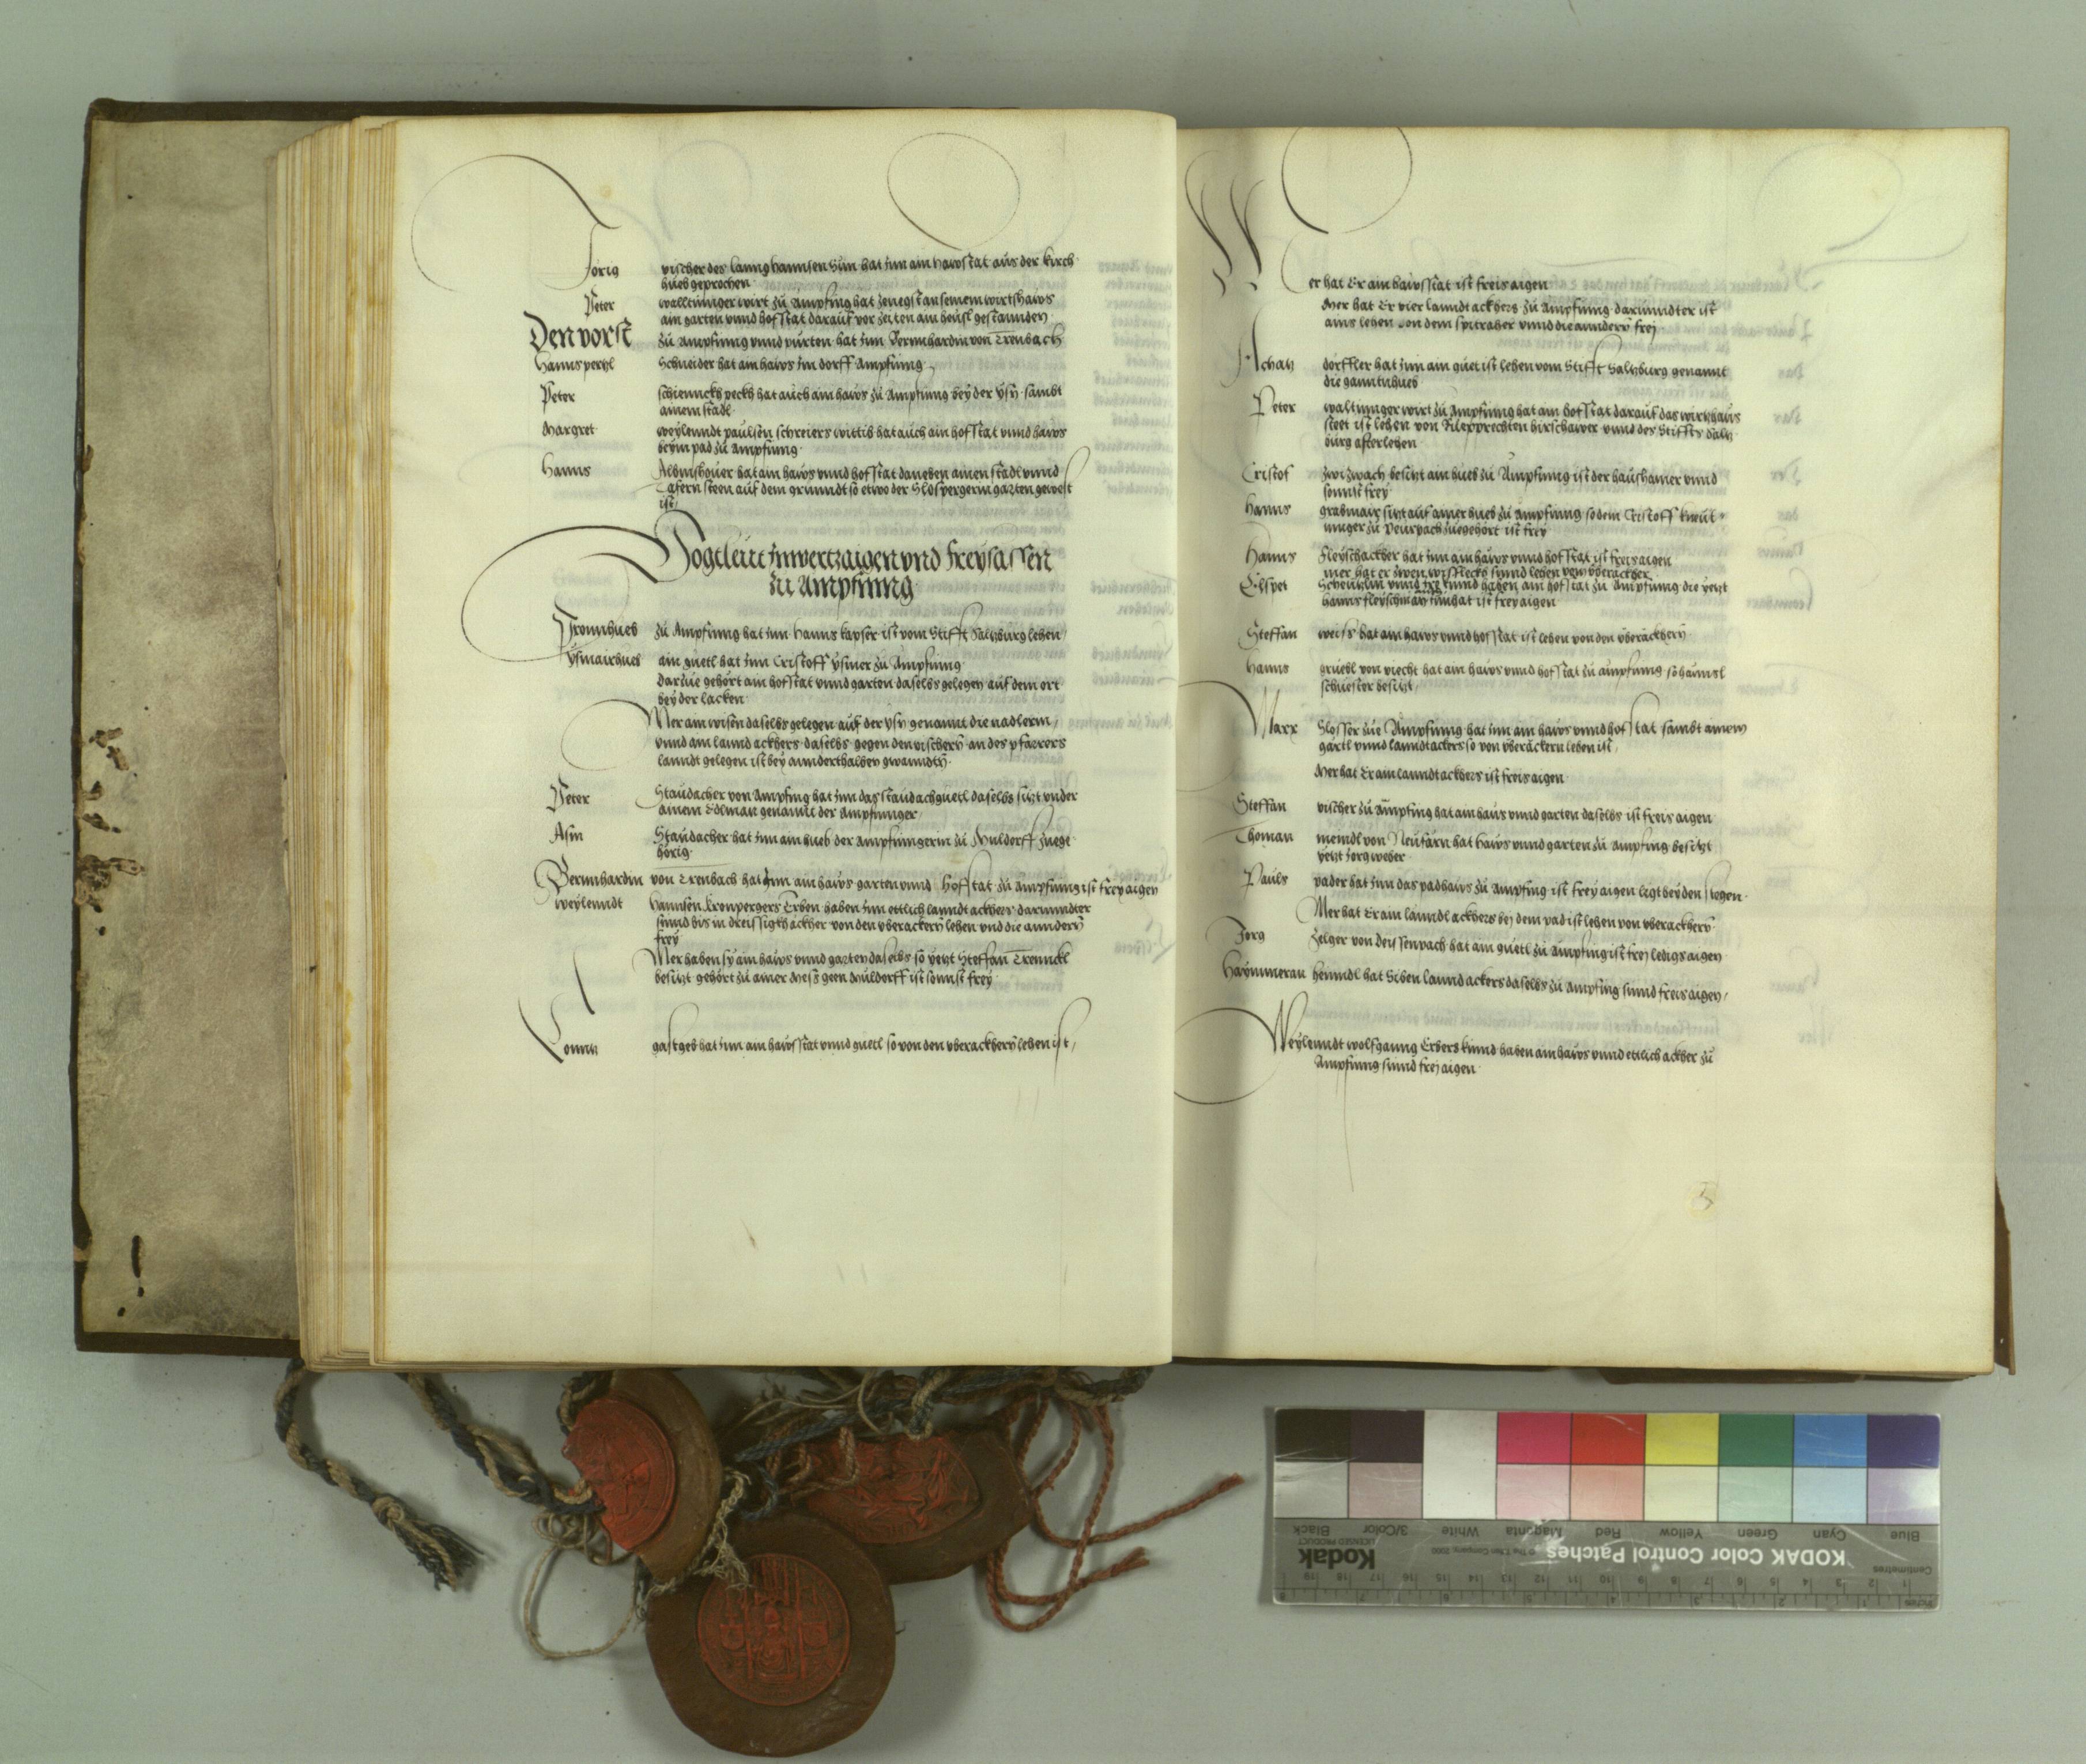 Jorig vischer des lanng hannsen Sun hat Inn ain hawsstat aus der kirch
hueb geprochen
Peter walltinger wirt zu Ampfing hat zenegst an seinem wirtshaws
ain garten vnnd hofstat darauf vor zeiten ain heusl gestannden
Den vorst zu Ampfinng vnnd purten hat Inn Bernnhardin von Trenbach
Hanns Schneider hat ain haws im dorff Ampfinng
Peter peckh hat auch ain haws zu Ampfinng bey der ysn sambt
ainem stadl
Margret weylenndt paulsen schreiers wittib hat auch ain hofstat vnnd haws
beym pad zu Ampfinng
Hanns hat ain haws vnnd hofstat daneben ainen stadl vnnd
Tafern steen auf dem grunndt so etwo der Slospergerin garten gewest
ist
Vogtleut Inwertzaigen vnd freysassen
zu Ampfinng
Fronnhueb zu Ampfinng hat Inn Hanns kayser ist vom Stifft Saltzburg lehen
ysmairhueb ain guetl hat Inn Cristoff ysmer zu Ampfinng
darzue gehört ain hofstat vnnd garten daselbs gelegen auf dem ort
bey der lacken
Mer ain wisen daselbs gelegen auf der ysn genannt die nadlerin
vnnd ain lannd ackhers daselbs gegen den vischern an des pfarrers
lanndt gelegen ist bey annderthalben gwanndtn
Peter Staudacher von Ampfing hat Inn das staudachguetl daselbs sitzt vnder
ainem Edlman genannt der Ampfinger
Asm Staudacher hat Inn ain hueb der Ampfingerin zu Muldorff zuege
hörig
Bernnhardin von Trenbach hat Inn ain haws garten vnnd hofstat zu Ampfinng ist frey aigen
weylenndt Hannsen kronpergers Erben haben Inn ettlich lanndt ackhers darunndter
sinnd bis in dreissigkh ackher von den vberackern lehen vnd die anndern
frey
Mer haben sy ain haws vnnd garten daselbs so yetzt Steffan Trennckl
besitzt gehört zu ainer Mess geen Muldorff ist sonnst frey
Conntz gastgeb hat Inn ain hawsstat vnnd guetl so von den vberackhern lehen ist
Mer hat Er ain hawsstat ist freis aigen
Mer hat Er vier lanndt ackhers zu Ampfinng darunndter ist
ains lehen von dem vnnd die anndern frey
Achatz dorffler hat Inn ain guet ist lehen vom Stifft Saltzburg genannt
die
Peter waltinger wirt zu Ampfinng hat ain hofstat darauf das wirtzhaws
steet ist lehen von hirschawer vnnd des Stiffts Saltz
burg afterlehen
Cristof besitzt ain hueb zu Ampfinng ist der haushamer vnnd
sonnst frey
Hanns grabmair sitzt auf ainer hueb zu Ampfinng so dem Cristoff
zu Peurpach zuegehört ist frey
Hanns Fleyschackher hat Inn ain haws vnnd hofstat ist freis aigen
mer hat er zwen wisflecks sinnd lehen vom vberackher
Elspet vnnd Ire kinnd haben ain hofstat zu Ampfinng die yetzt
hanns fleyschman Innhat ist frey aigen
Steffan weiss hat ain haws vnnd hofstat ist lehen von den vberackhern
Hanns von hat ain haws vnnd hofstat zu Ampfinng so hannsl
schuester besitzt
Marx Slosser zue Ampfinng hat Inn ain haws vnnd hofstat sambt ainem
gartl vnnd lanndt ackers so von vberackern lehen ist
Mer hat Er ain lanndt ackhers ist freis aigen
Steffan vischer zu Ampfing hat ain haus vnnd garten daselbs ist freis aigen
Thoman meindl von Neufarn hat haws vnnd garten zu Ampfing besitzt
yetzt Jorg weber
Pauls pader hat Inn das padhaws zu Ampfing ist frey aigen ligt bey den stegen
Mer hat Er ain lanndt ackhers bej dem pad ist lehen von vberackhern
Jorg zelger von deissenpach hat ain guetl zu Ampfing ist frej ledigs aigen
Haymmeran heinndl hat Siben lannd ackers daselbs zu Ampfing sinnd freis aigen
Weylenndt wolfganng Erbers kinnd haben ain haws vnnd ettlich ackher zu
Ampfinng sinnd frej aigen
5
Blue
Cyan
Green
Yellow
Red
Magenta
White
3/Color
Black
KODAK Color Control Patches
Kodak
LICENSED PRODUCT
Centimetres
Inches